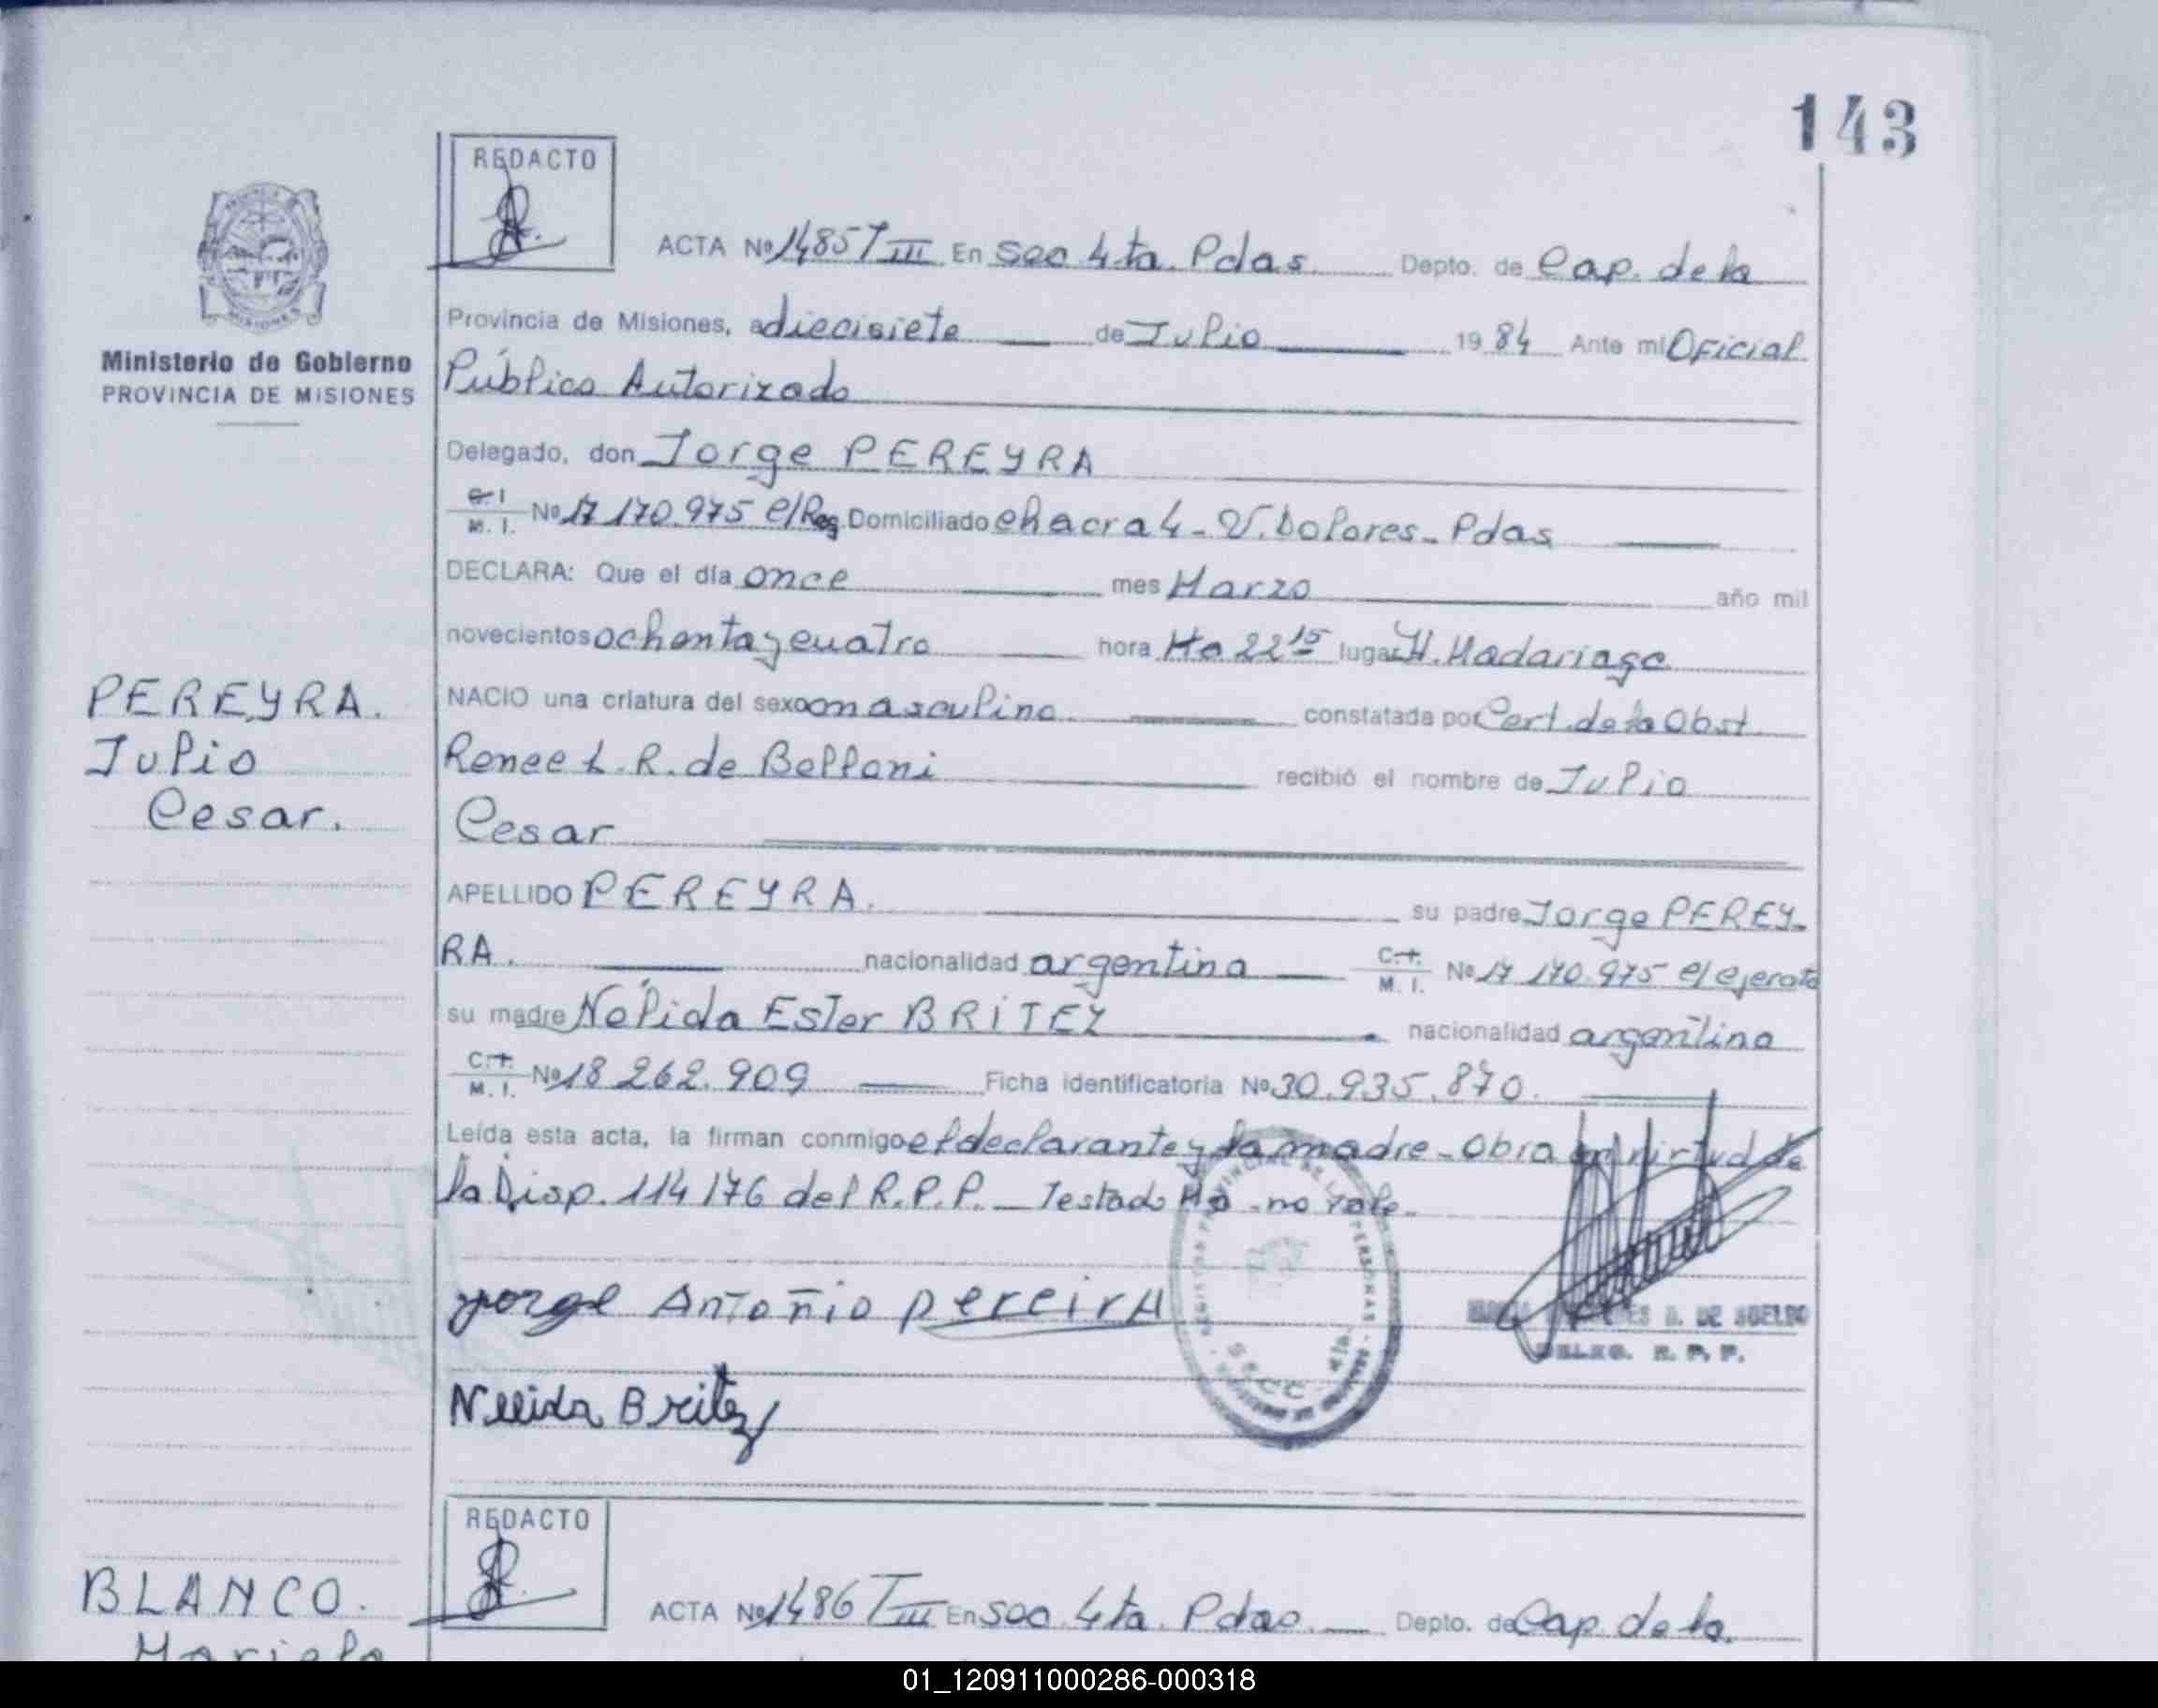 143
REDACTO
ACTA Nº 1485 T III En Sec 4ta. Pdas. Depto. de Cap. de la
Provincia de Misiones, a diecisiete de Julio 19 84 Ante mi Oficial
Ministerio de Gobierno
PROVINCIA DE MISIONES
Público Autorizado
Delegado, don Jorge PEREYRA
C.I M. I. Nº 17 170.975 e/Reg Domiciliado chacra 4 - V. Dolores - Pdas
DECLARA: Que el día once mes Marzo año mil
novecientos ochenta y cuatro hora Ho 22 15 lugar H. Madariaga
PEREYRA.
Julio
Cesar.
NACIO una criatura del sexo masculino constatada por Cert. de la Obst
Renee L. R. de Belloni recibió el nombre de Julio
Cesar
APELLIDO PEREYRA. su padre Jorge PEREY-
RA. nacionalidad argentina C.I. M. I. Nº 17 170.975 e/ ejercito
su madre Nélida Ester BRITEZ nacionalidad argentina
C.I. M. I. Nº 18 262.909 Ficha identificatoria Nº 30.935.870.
Leída esta acta, la firman conmigo el declarante y la madre - Obra en virtud de
la Disp. 114/76 del R.P.P. - Testado Ho - no vale.
Jorge Antonio pereira
DE LAS PERSONAS
SECC. 4ta.
DE
DELEG. R. P. P.
Nelida Britez
REDACTO
BLANCO.
Mariela
ACTA Nº 1486 T III En Sec. 4ta. Pdas. Depto. de Cap. de la.
01_120911000286-000318